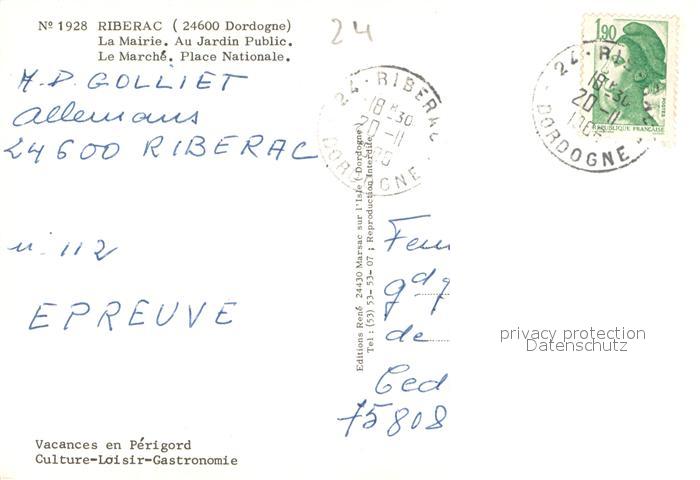 Nº 1928 RIBERAC ( 24600 Dordogne)
La Mairie. Au Jardin Public.
Le Marché. Place Nationale.
24
M.D. GOLLIET
allemans
24600 RIBERAC
n. 112
EPREUVE
Vacances en Périgord
Culture-Loisir-Gastronomie
24 - RIBERAC
18 H 30
20 - 11
DORDOGNE
Editions René 24430 Marsac sur l'Isle ( Dordogne
Tel : (53) 53-53-07 ; Reproduction Interdite
1,90
POSTES
REPUBLIQUE FRANÇAISE
24 - RI
18 H 30
20 - 11
DORDOGNE
de
Ced
75808
privacy protection
Datenschutz